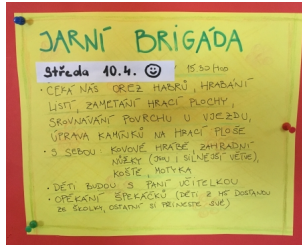 JARNÍ BRIGÁDA
Středa 10.4. 15.30/H00
• ČEKÁ NÁS OŘEZ HABRŮ, HRABÁNÍ
LISTÍ, ZAMETÁNÍ HRACÍ PLOCHY,
SROVNÁVÁNÍ POVRCHU U VJEZDU,
ÚPRAVA KAMÍNKŮ NA HRACÍ PLOŠE
• S SEBOU: KOVOVÉ HRÁBĚ, ZAHRADNÍ
NŮŽKY (I NA SILNĚJŠÍ VĚTVE),
KOŠTĚ, MOTYKA
• DĚTI BUDOU S PANÍ UČITELKOU
• OPÉKÁNÍ ŠPEKÁČKŮ (DĚTI Z MŠ DOSTANOU
ZE ŠKOLKY, OSTATNÍ SI PŘINESTE SVÉ)